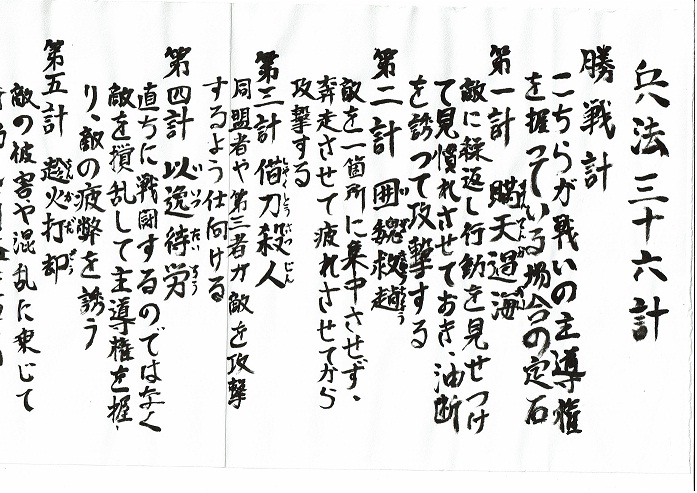 兵法三十六計
勝戦計
こちらが戦いの主導権
を握っている場合の定石
第一計 瞞天過海
敵に繰返し行動を見せつけ
て見慣れさせておき、油断
を誘って攻撃する
第二計 囲魏救趙
敵を一箇所に集中させず、
奔走させて疲れさせてから
攻撃する
第三計 借刀殺人
しゃくとうさつじん
同盟者や第三者が敵を攻撃
するよう仕向ける
第四計 以逸待労
いいつたいろう
直ちに戦闘するのではなく
敵を撹乱して主導権を握
り、敵の疲弊を誘う
第五計 趁火打劫
敵の被害や混乱に乗じて